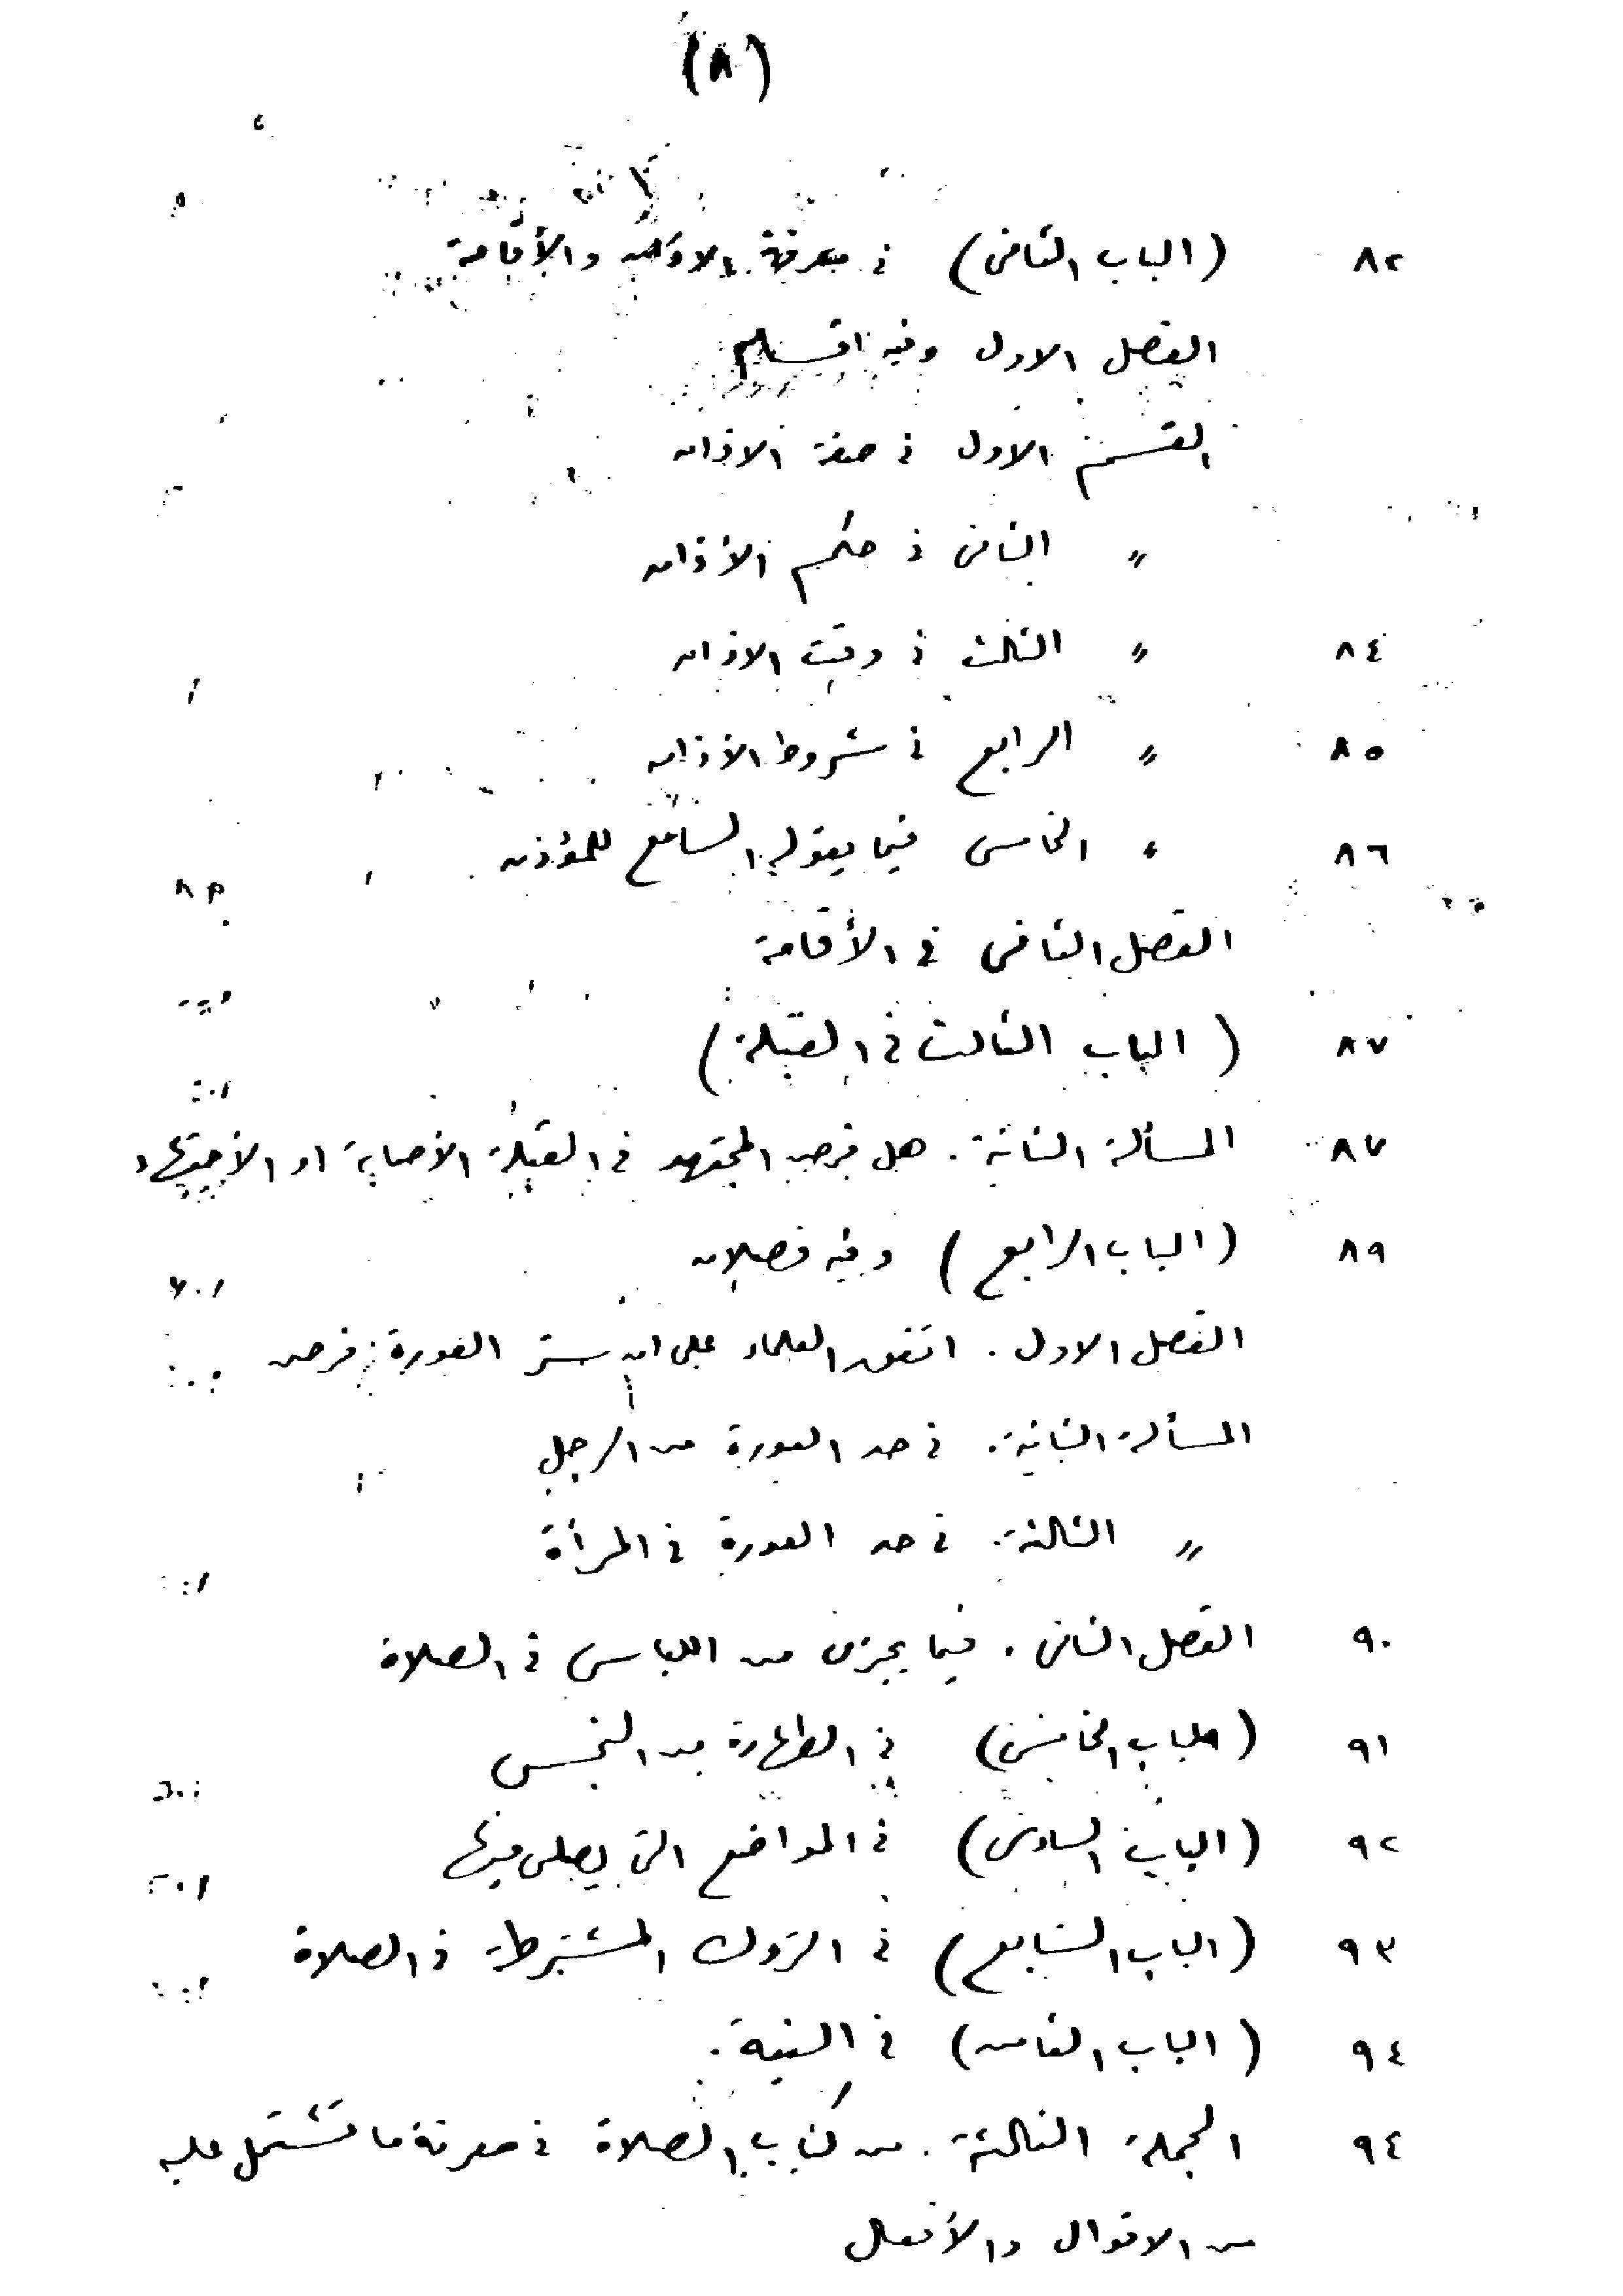 (٨)
٨٢ (الباب الثانى) فى معرفة الاذان والأقامة
الفصل الاول وفيه اقسام
القسم الاول فى صفة الاذان
〃 الثانى فى حكم الأذان
٨٤ 〃 الثالث فى وقت الاذان
٨٥ 〃 الرابع فى شروط الأذان
٨٦ 〃 الخامس فيما يقوله السامع للمؤذن
الفصل الثانى فى الأقامة
٨٧ (الباب الثالث فى القبلة)
٨٧ المسألة الثانية. هل فرض المجتهد فى القبلة الأصابة او الأجتهاد
٨٩ (الباب الرابع) وفيه فصلان
الفصل الاول. اتفق العلماء على ان ستر العورة فرض
المسألة الثانية. فى حد العورة من الرجل
〃 الثالثة. فى حد العورة فى المرأة
٩٠ الفصل الثانى. فيما يجزى من اللباس فى الصلاة
٩١ (الباب الخامس) فى الطهارة من النجس
٩٢ (الباب السادس) فى المواضع التى يصلى فيها
٩٣ (الباب السابع) فى التروك المشترطة فى الصلاة
٩٤ (الباب الثامن) فى النية.
٩٤ الجملة الثالثة. من كتاب الصلاة فى معرفة ما تشتمل عليه
من الاقوال والأفعال